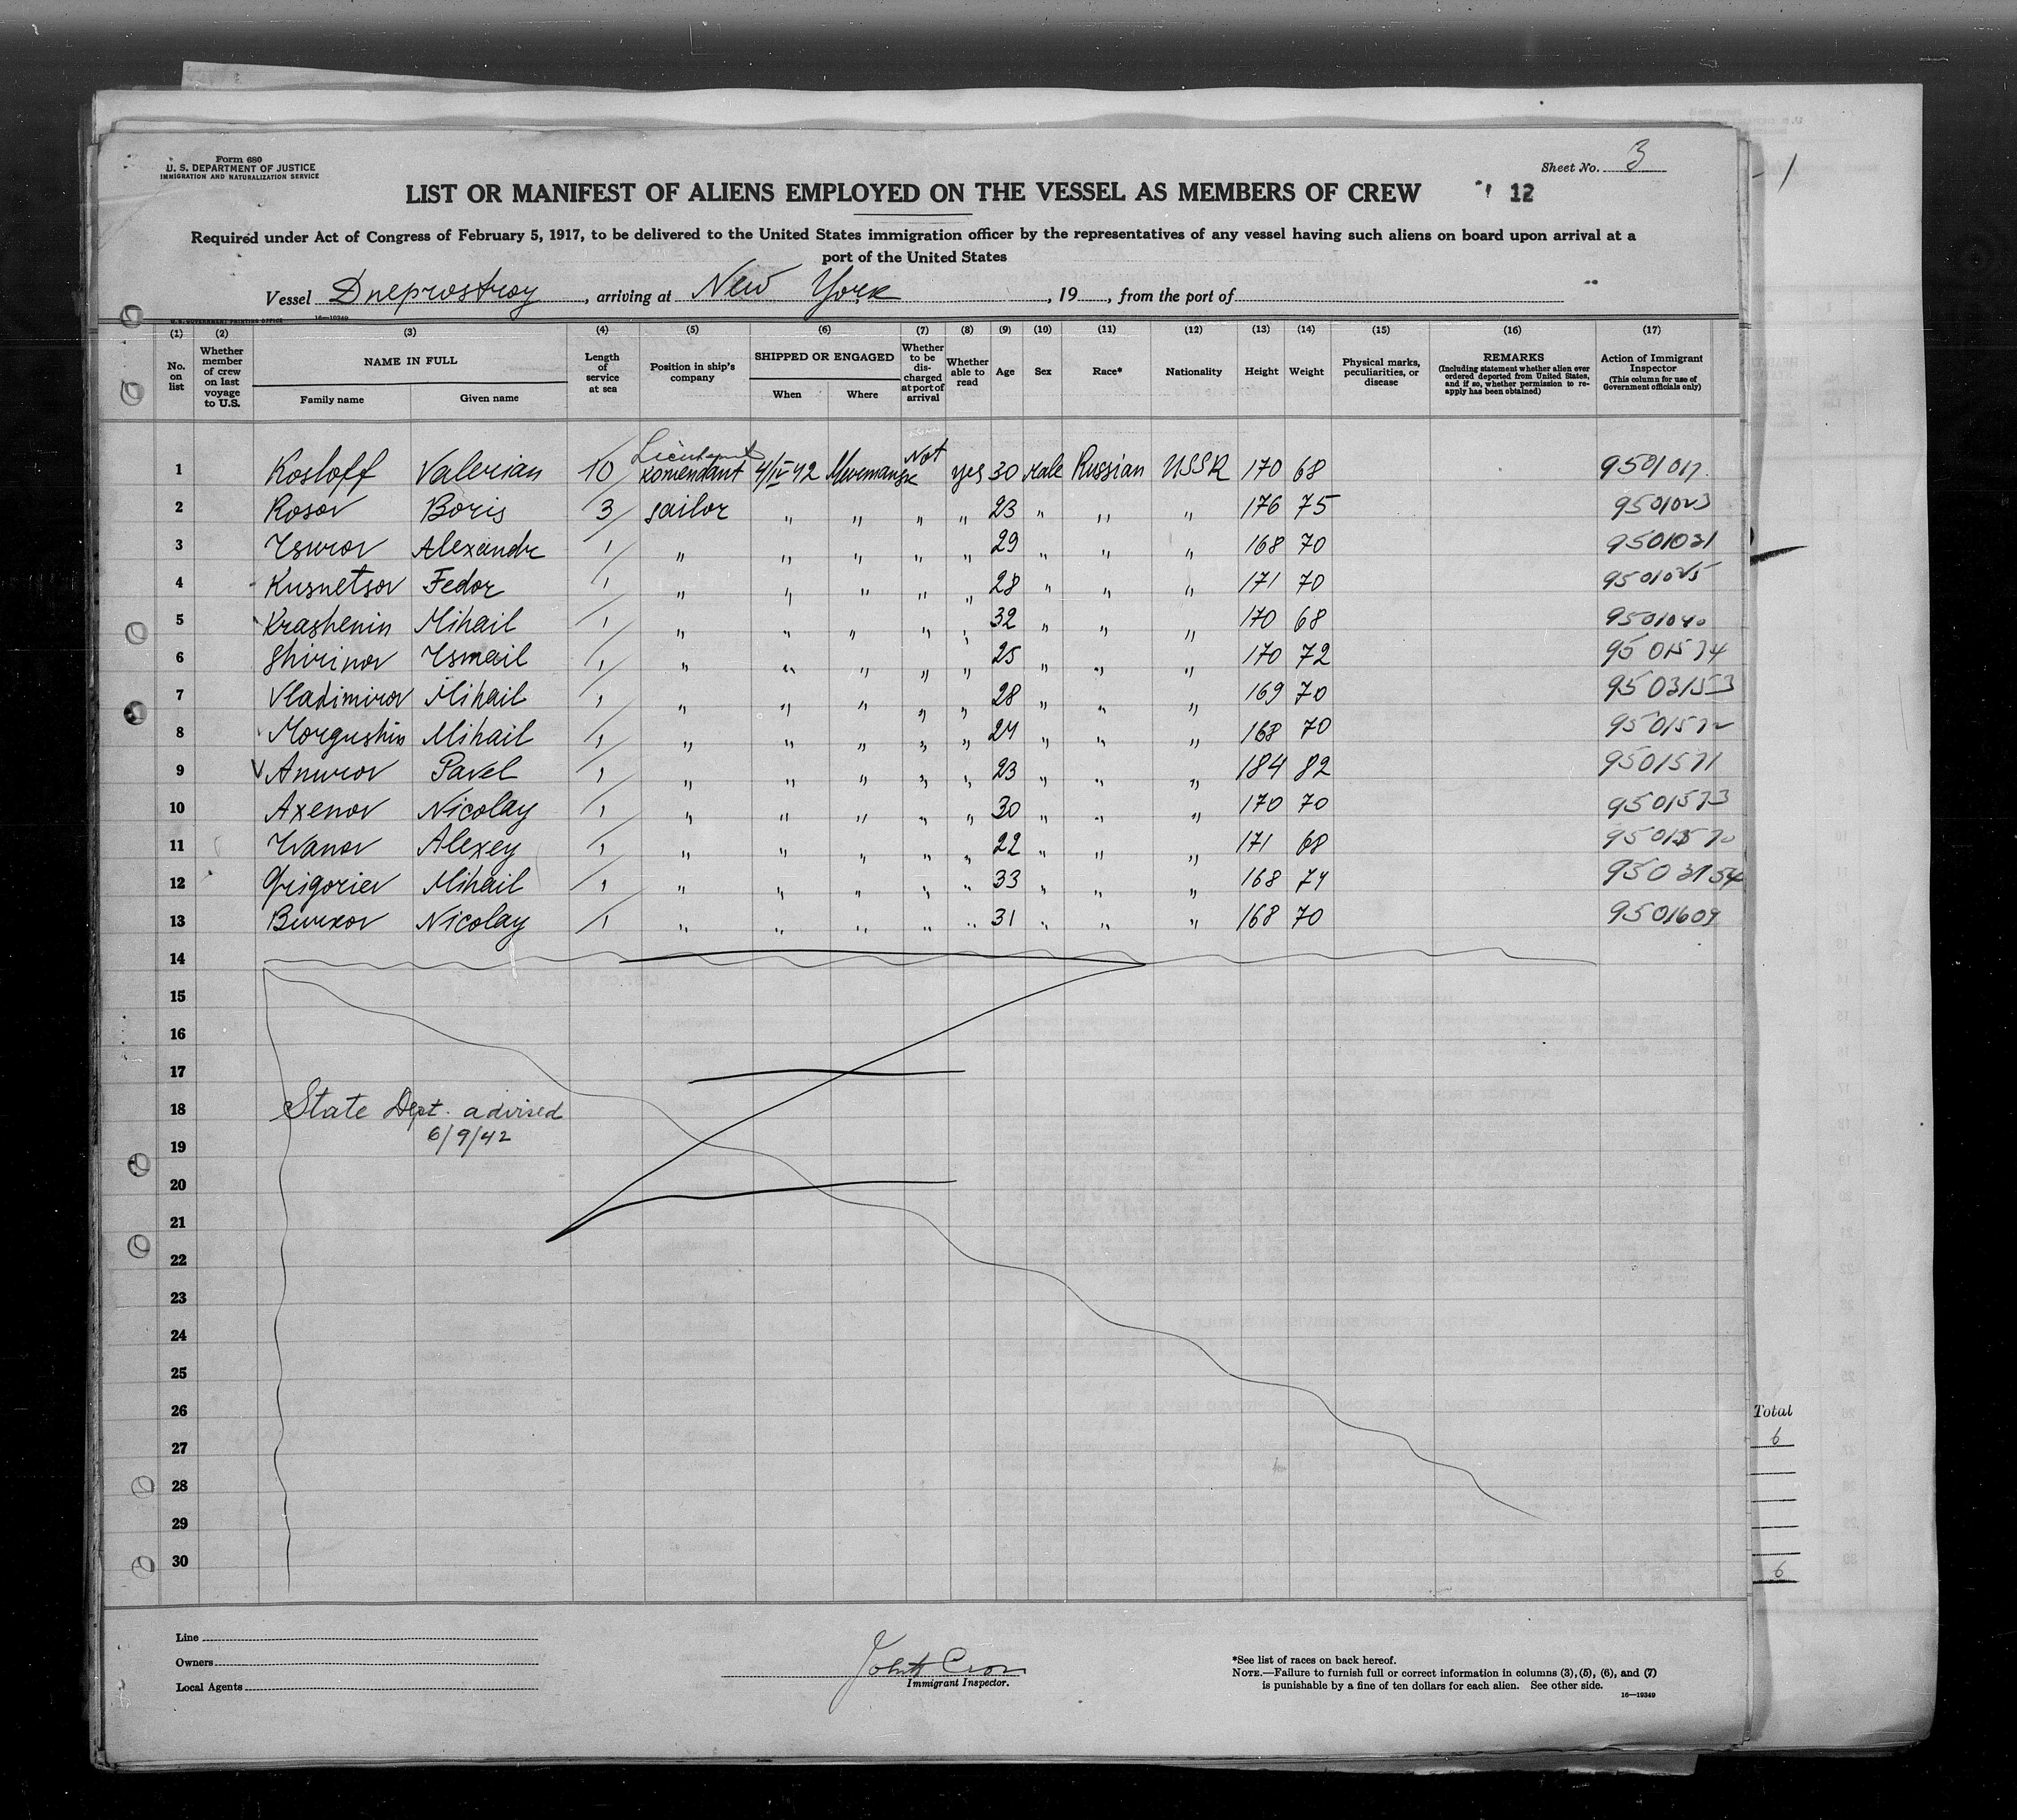 Form 680
U. S. DEPARTMENT OF JUSTICE
IMMIGRATION AND NATURALIZATION SERVICE
Sheet No. 3
LIST OR MANIFEST OF ALIENS EMPLOYED ON THE VESSEL AS MEMBERS OF CREW 12
Required under Act of Congress of February 5, 1917, to be delivered to the United States immigration officer by the representatives of any vessel having such aliens on board upon arrival at a
port of the United States
Vessel Dneprostroy, arriving at New York, 19, from the port of
U. S. GOVERNMENT PRINTING OFFICE 16—19349
(1) (2) (3) (4) (5) (6) (7) (8) (9) (10) (11) (12) (13) (14) (15) (16) (17)
No. on list
Whether member of crew on last voyage to U.S.
NAME IN FULL
Family name
Given name
Length of service at sea
Position in ship's company
SHIPPED OR ENGAGED
When
Where
Whether to be discharged at port of arrival
Whether able to read
Age
Sex
Race*
Nationality
Height
Weight
Physical marks, peculiarities, or disease
REMARKS
(Including statement whether alien ever ordered deported from United States, and if so, whether permission to reapply has been obtained)
Action of Immigrant Inspector
(This column for use of Government officials only)
1 Kosloff Valerian 10 Lieutenant komendant 4/IV 42 Murmansk Not yes 30 male Russian USSR 170 68 9501017
2 Rosov Boris 3 sailor " " " " 23 " " " 176 75 9501023
3 Alexandr 1 " " " " " 29 " " " 168 70 9501031
4 Kusnetsov Fedor 1 " " " " " 28 " " " 171 70 9501025
5 Krashenin Mihail 1 " " " " " 32 " " " 170 68 9501040
6 Shirinov Ysmail 1 " " " " " 25 " " " 170 72 9501574
7 Vladimirov Mihail 1 " " " " " 28 " " " 169 70 9503153
8 Morgushin Mihail 1 " " " " " 24 " " " 168 70 9501572
9 Pavel 1 " " " " " 23 " " " 184 82 9501571
10 Axenov Nicolay 1 " " " " " 30 " " " 170 70 9501573
11 Yvanov Alexey 1 " " " " " 22 " " " 171 68 9501570
12 Grigoriev Mihail 1 " " " " " 33 " " " 168 74 9503154
13 Nicolay 1 " " " " " 31 " " " 168 70 9501609
14
15
16
17
18 State Dept. advised
19 6/9/42
20
21
22
23
24
25
26
27
28
29
30
Total
6
6
Line
Owners
Local Agents
Immigrant Inspector.
*See list of races on back hereof.
NOTE.—Failure to furnish full or correct information in columns (3), (5), (6), and (7)
is punishable by a fine of ten dollars for each alien. See other side.
16—19349